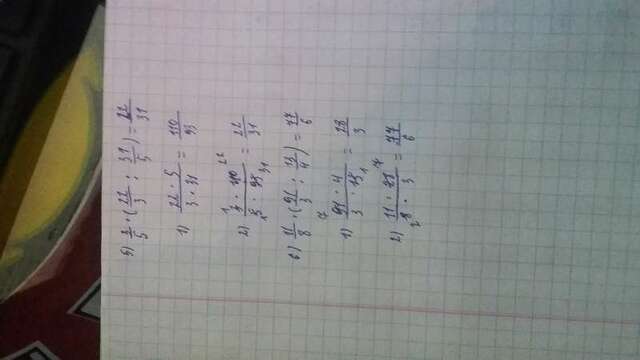 5) 3/5 · (22/3 : 31/5) = 22/31
1) 22 · 5 / 3 · 31 = 110/93
2) 3 · 110 / 5 · 93 = 22/31
6) 11/8 · (91/3 : 13/4) = 77/6
1) 91 · 4 / 3 · 13 = 28/3
2) 11 · 28 / 8 · 3 = 77/6